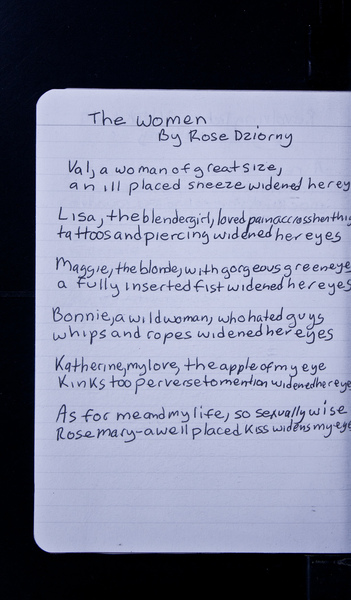 The Women
By Rose Dziorny
Val, a woman of great size,
an ill placed sneeze widened her ey
Lisa, the blendergirl, loved pain across her thig
tattoos and piercing widened her eyes
Maggie, the blonde, with gorgeous green eye
a fully inserted fist widened her eyes
Bonnie, a wild woman, who hated guys
whips and ropes widened her eyes
Katherine, my love, the apple of my eye
Kinks too perverse to mention widened her eye
As for me and my life, so sexually wise
Rosemary-a well placed kiss widens my eye